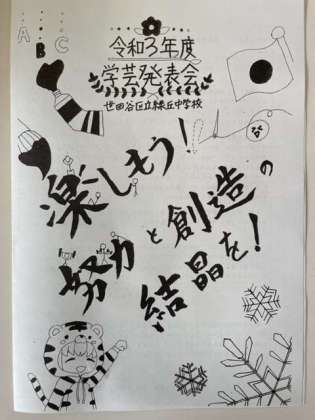 A B C
令和3年度
学芸発表会
世田谷区立緑丘中学校
な
楽しもう!
努力と創造の
結晶を!